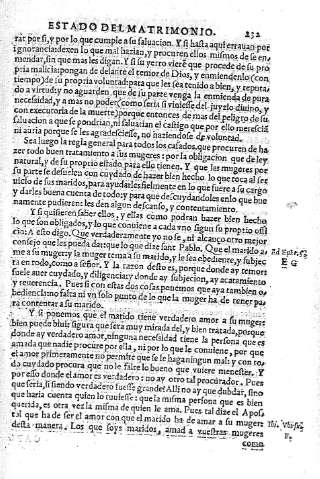 ESTADO DEL MATRIMONIO. 232
rar por si, y por lo que cumple a su saluacion. Y si hasta aqui errauan por
ignorancia: dexen lo que mal hazian, y procuren ellos mismos de se en
mendar, sin que mas les digan. Y si su yerro viere que procede de su pro
pria malicia: pongan de delante el temor de Dios, y enmiendenlo (con
tiempo) de su propria voluntad: para que les sea tenido a bien, y reputa
do a virtud: y no aguarden que de su parte venga la enmienda de pura
necesidad, y a mas no poder (como seria si viniesse del juyzio diuino, y
con executoria de la muerte) porque entonces de mas del peligro de su
saluacion a que se pondrian, ni saluarian el castigo que por ello merescia
ni auria porque se les agradesciesse, no haziendose de voluntad.
Sea luego la regla general para todos los casados, que procuren de ha
zer todo buen tratamiento a sus mugeres: por la obligacion que de ley
natural, y de su proprio estado para ello tienen. Y que las mugeres por
su parte se desuelen con cuydado de hazer bien hecho lo que toca al ser
uicio de sus maridos, para ayudarles fielmente en lo que fuere a su cargo
y darles buena cuenta de todo: y para que descuydandoles en lo que bue
namente pudieren: les den algun descanso, y contentamiento.
Y si quisieren saber ellos, y ellas como podran hazer bien hecho
lo que son obligados, y lo que conuiene a cada vno segun su proprio offi
cio: A esto digo. Que verdaderamente yo no se, ni alcanço otro mejor
consejo que les pueda dar: que lo que dize sant Pablo. Que el marido a- Ad Ephe. 5.
me a su muger: y la muger tema a su marido, y le sea obediente, y subjec E G
ta en todo, como a señor. Y la razon desto es, porque donde ay temor:
suele auer cuydado, y diligencia: y donde ay subjecion, ay acatamiento
y reuerencia. Pues si con estas dos cosas ponemos que aya tambien o-
bediencia: no falta ni vn solo punto de lo que la muger ha de tener pa-
ra contentar a su marido.
Y si ponemos que el marido tiene verdadero amor a su muger:
bien puede biuir segura que sera muy mirada del, y bien tratada, porque
donde ay verdadero amor, ninguna necessidad tiene la persona que es
amada que nadie procure por ella, ni por lo que le conuiene, por que
el amor primeramente no permite que se le haga ningun mal: y con to-
do cuydado procura que no le falte lo bueno que vuiere menester. Y
por esso donde el amor es verdadero: no ay otro tal procurador. Pues
que seria, si siendo verdadero fuesse grande? Alli no ay que dubdar, sino
que haria cuenta quien lo tuuiesse: que la misma persona que es bien
querida, es otra vez la misma de quien le ama. Pues tal dize el Apos
tal que ha de ser el amor con que el marido ha de amar a su muger: Ibi.
desta manera. Los que soys maridos, amad a vuestras mugeres
como